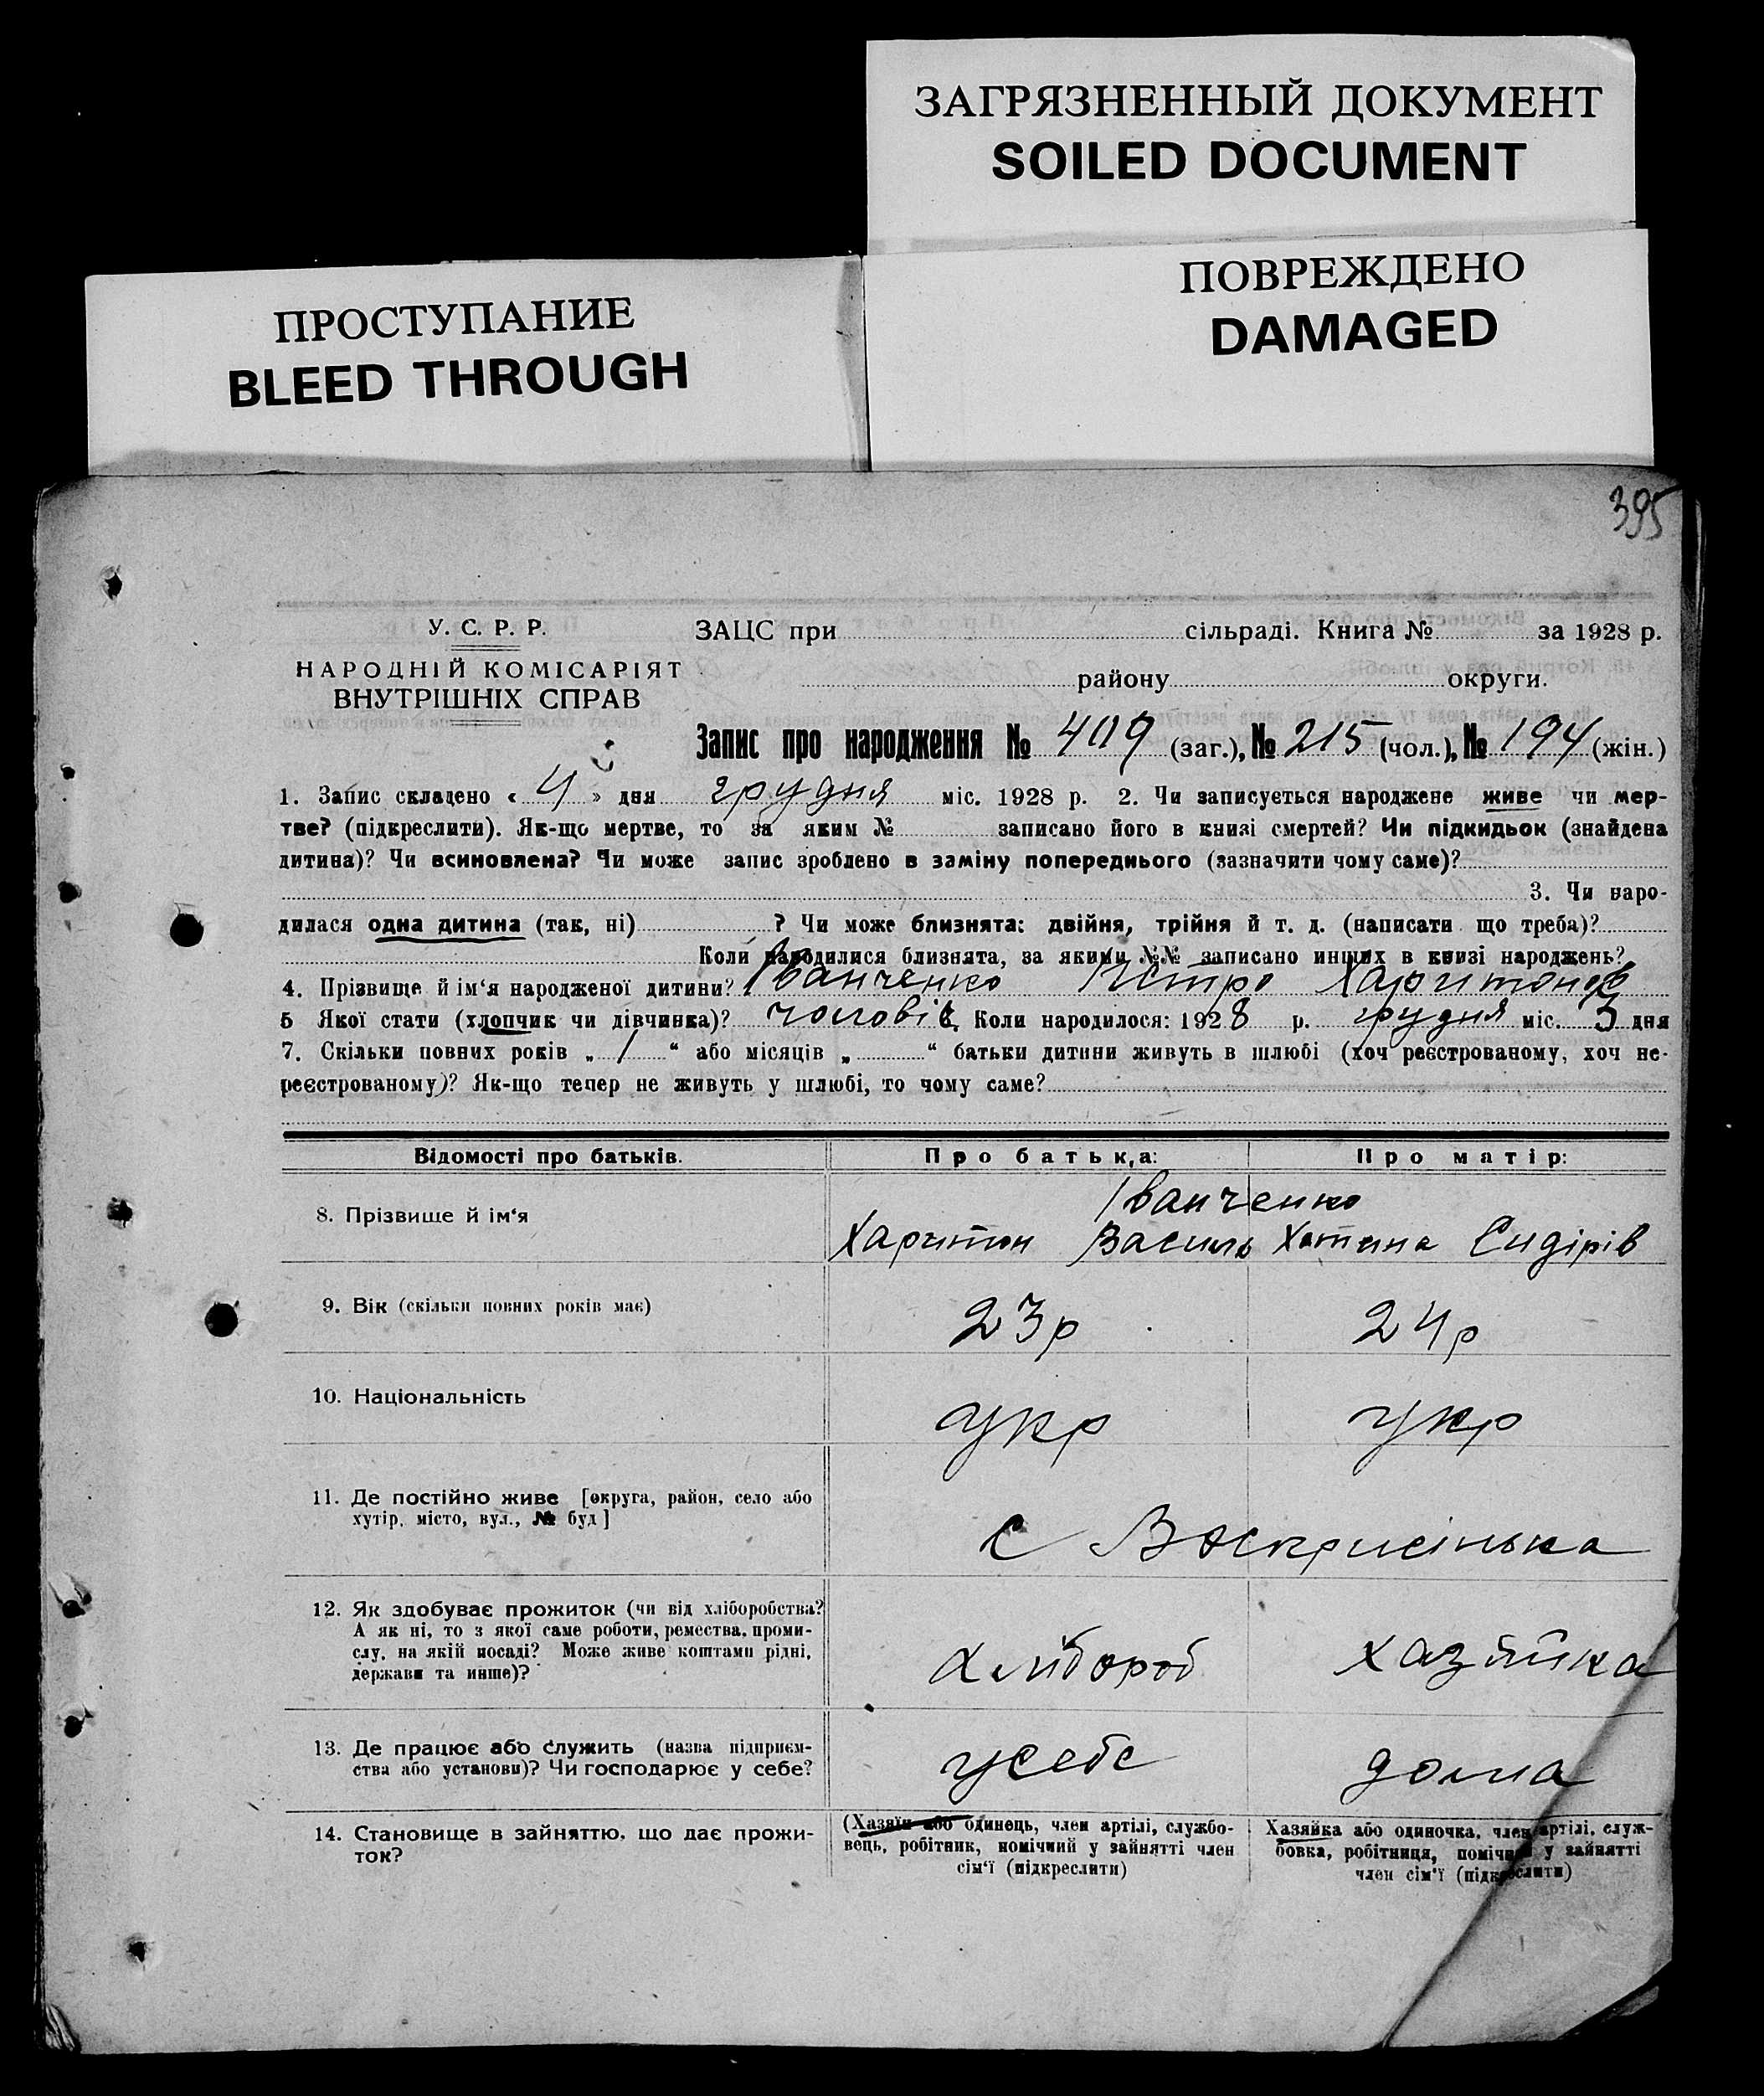 ЗАГРЯЗНЕННЫЙ ДОКУМЕНТ
SOILED DOCUMENT
ПОВРЕЖДЕНО
DAMAGED
ПРОСТУПАНИЕ
BLEED THROUGH
395
У. С. Р. Р.
НАРОДНІЙ КОМІСАРІЯТ
ВНУТРІШНІХ СПРАВ
ЗАЦС при сільраді. Книга № за 1928 р.
району округи.
Запис про народження № 409 (заг.), № 215 (чол.), № 194 (жін.)
1. Запис складено « 4 » дня грудня міс. 1928 р. 2. Чи записується народжене живе чи мер-
тве? (підкреслити). Як-що мертве, то за яким № записано його в книзі смертей? Чи підкидьок (знайдена
дитина)? Чи всиновлена? Чи може запис зроблено в заміну попереднього (зазначити чому саме)?
3. Чи наро-
дилася одна дитина (так, ні) ? Чи може близнята: двійня, трійня й т. д. (написати що треба)?
Коли народилися близнята, за якими №№ записано инших в книзі народжень?
4. Прізвище й ім‘я народженої дитини? Іванченко Петро Харитонов
5 Якої стати (хлопчик чи дівчинка)? чоловіч. Коли народилося: 1928 р. грудня міс. 3 дня
7. Скільки повних років „ 1 “ або місяців „ “ батьки дитини живуть в шлюбі (хоч реєстрованому, хоч не-
реєстрованому)? Як-що тепер не живуть у шлюбі, то чому саме?
Відомості про батьків. Про батька: Про матір:
8. Прізвище й ім‘я Іванченко
Харитон Василь Хотина Сидірів
9. Вік (скільки повних років має) 23р 24р
10. Національність укр укр
11. Де постійно живе [округа, район, село або
хутір, місто, вул., № буд] с Воскрисінька
12. Як здобуває прожиток (чи від хліборобства?
А як ні, то з якої саме роботи, ремества, проми-
слу, на якій посаді? Може живе коштами рідні,
держави та инше)? хлібороб хазяйка
13. Де працює або служить (назва підприєм-
ства або установи)? Чи господарює у себе? усебе дома
14. Становище в зайняттю, що дає прожи-
ток?
(Хазяїн або одинець, член артілі, службо-
вець, робітник, помічний у зайнятті член
сім‘ї (підкреслити)
Хазяйка або одиночка, член артілі, служ-
бовка, робітниця, помічна у зайнятті
член сім‘ї (підкреслити)